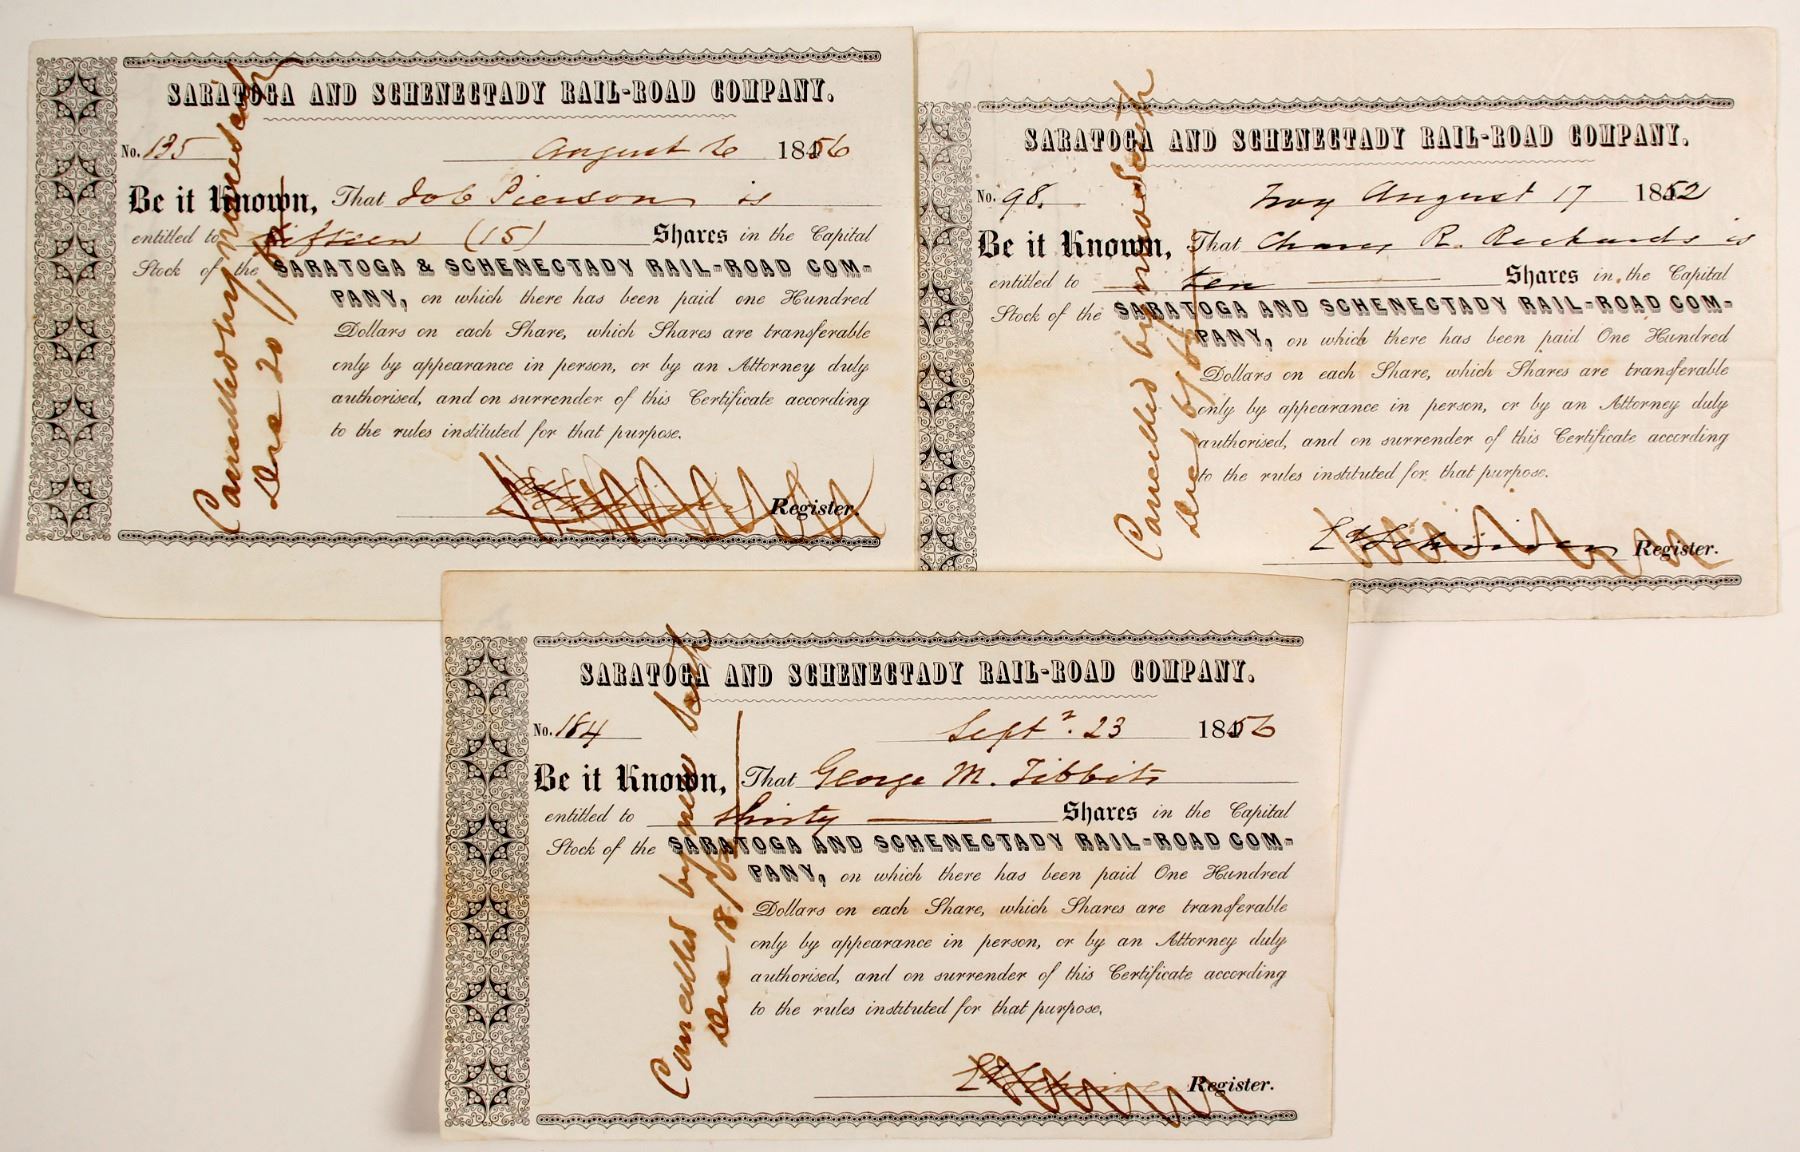 SARATOGA AND SCHENECTADY RAIL-ROAD COMPANY.
No. 135 August 6 1856
Be it Known, That Job Pierson is
entitled to fifteen (15) Shares in the Capital
Stock of the SARATOGA & SCHENECTADY RAIL-ROAD COM-
PANY, on which there has been paid one Hundred
Dollars on each Share, which Shares are transferable
only by appearance in person, or by an Attorney duly
authorised, and on surrender of this Certificate according
to the rules instituted for that purpose.
Register.
Cancelled by new scrip
Dec 20
SARATOGA AND SCHENECTADY RAIL-ROAD COMPANY.
No. 98. Troy August 17 1852
Be it Known, That R. Richards is
entitled to ten Shares in the Capital
Stock of the SARATOGA AND SCHENECTADY RAIL-ROAD COM-
PANY, on which there has been paid One Hundred
Dollars on each Share, which Shares are transferable
only by appearance in person, or by an Attorney duly
authorised, and on surrender of this Certificate according
to the rules instituted for that purpose.
Register.
Cancelled by new
Dec
SARATOGA AND SCHENECTADY RAIL-ROAD COMPANY.
No. 184 Sept. 23 1856
Be it Known, That George M. Tibbits
entitled to thirty Shares in the Capital
Stock of the SARATOGA AND SCHENECTADY RAIL-ROAD COM-
PANY, on which there has been paid One Hundred
Dollars on each Share, which Shares are transferable
only by appearance in person, or by an Attorney duly
authorised, and on surrender of this Certificate according
to the rules instituted for that purpose.
Register.
Cancelled by new
Dec 18